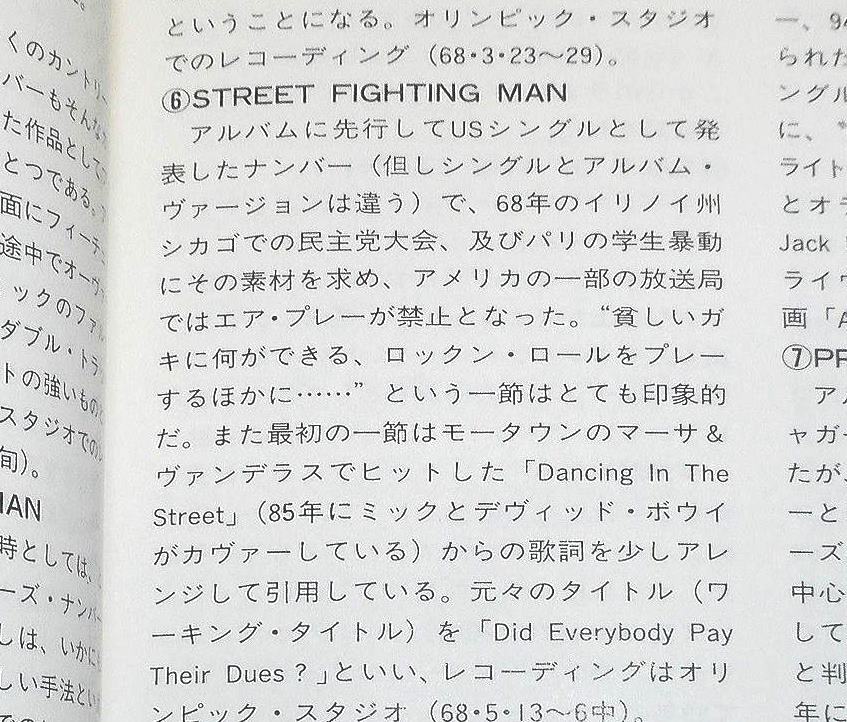 くのカントリー
バーもそんな
た作品として
とつである。
面にフィーチ
途中でオーヴ
ックのファ
ダブル・トラ
トの強いもの
スタジオでの
旬)。
MAN
時としては、
ーズ・ナンバー
しは、いかに
しい手法とい
ということになる。オリンピック・スタジオ
でのレコーディング（68・3・23〜29)。
⑥STREET FIGHTING MAN
アルバムに先行してUSシングルとして発
表したナンバー（但しシングルとアルバム・
ヴァージョンは違う）で、68年のイリノイ州
シカゴでの民主党大会、及びパリの学生暴動
にその素材を求め、アメリカの一部の放送局
ではエア・プレーが禁止となった。“貧しいガ
キに何ができる、ロックン・ロールをプレー
するほかに……” という一節はとても印象的
だ。また最初の一節はモータウンのマーサ＆
ヴァンデラスでヒットした「Dancing In The
Street」（85年にミックとデヴィッド・ボウイ
がカヴァーしている）からの歌詞を少しアレ
ンジして引用している。元々のタイトル（ワ
ーキング・タイトル）を「Did Everybody Pay
Their Dues？」といい、レコーディングはオリ
ンピック・スタジオ（68・5・13〜6中)。
ー、94
られた
ングル
に、
ライト
とオラ
Jack
ライヴ
画「A
⑦PR
アル
ャガー
たが、
ーと
ーズ
中心
して
と判
年に